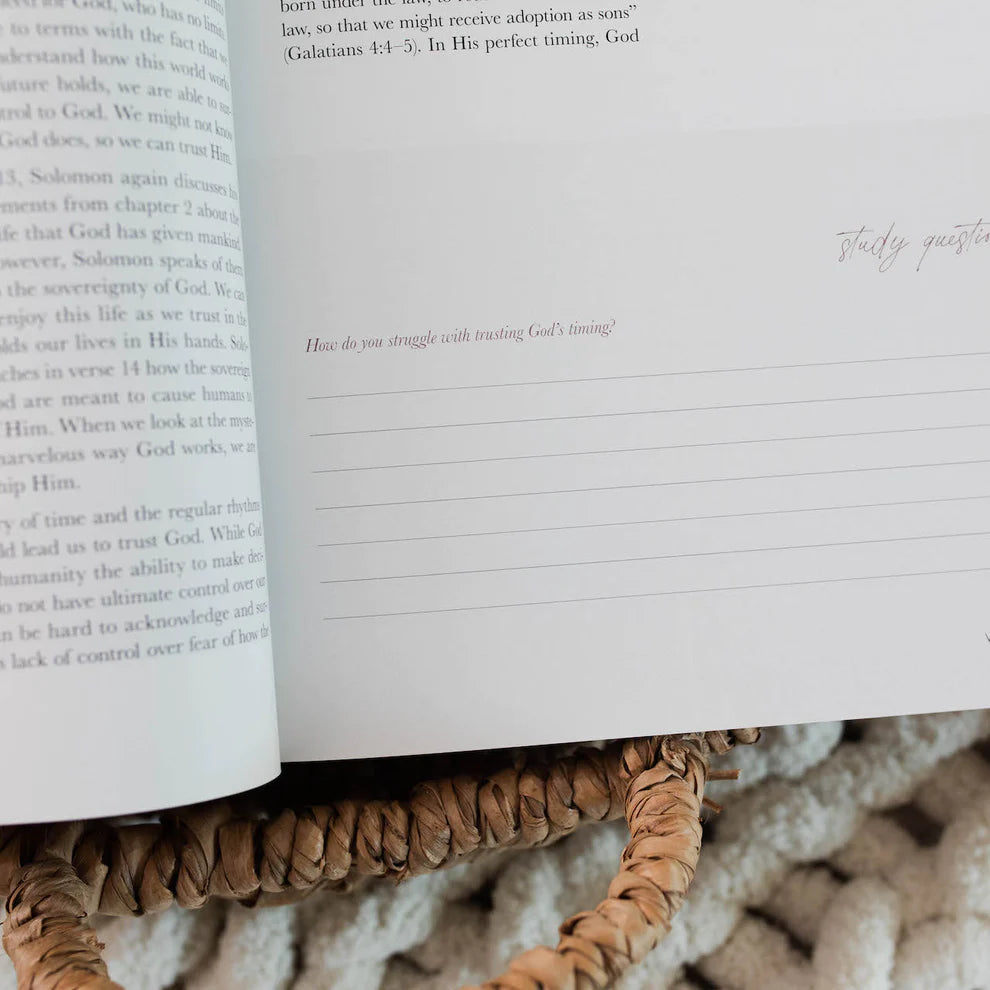 for God, who has no
to terms with the fact that
how this world
holds, we are able to
to God. We might not know
God does, so we can trust Him.
13, Solomon again discusses
from chapter 2 about the
that God has given mankind.
Solomon speaks of them
the sovereignty of God. We can
enjoy this life as we trust in the
our lives in His hands. Solo-
in verse 14 how the
are meant to cause humans
Him. When we look at the myste-
marvelous way God works, we are
Him.
of time and the regular rhythms
lead us to trust God. While God
humanity the ability to make deci-
not have ultimate control over our
be hard to acknowledge and sur-
lack of control over fear of how the
born under the law, to
law, so that we might receive adoption as sons”
(Galatians 4:4–5). In His perfect timing, God
study
How do you struggle with trusting God’s timing?